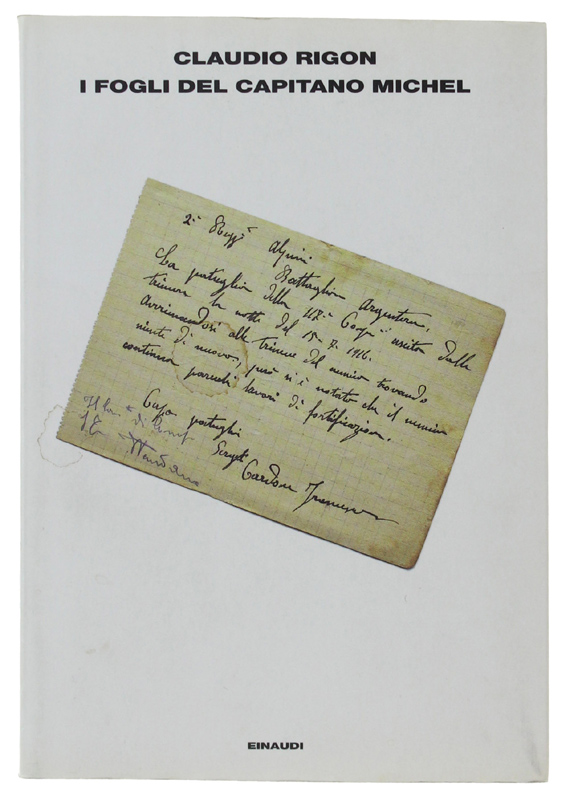 CLAUDIO RIGON
I FOGLI DEL CAPITANO MICHEL
2° Regg° Alpini
Battaglione Argentera.
La pattuglia della 117ª Compª uscita dalla
trincea la notte del 15-7-1916.
Avvicinandosi alle trincee del nemico trovando
niente di nuovo, però si è notato che il nemico
continua parecchi lavori di fortificazione.
Capo pattuglia
Sergte
Cardone Francesco
EINAUDI